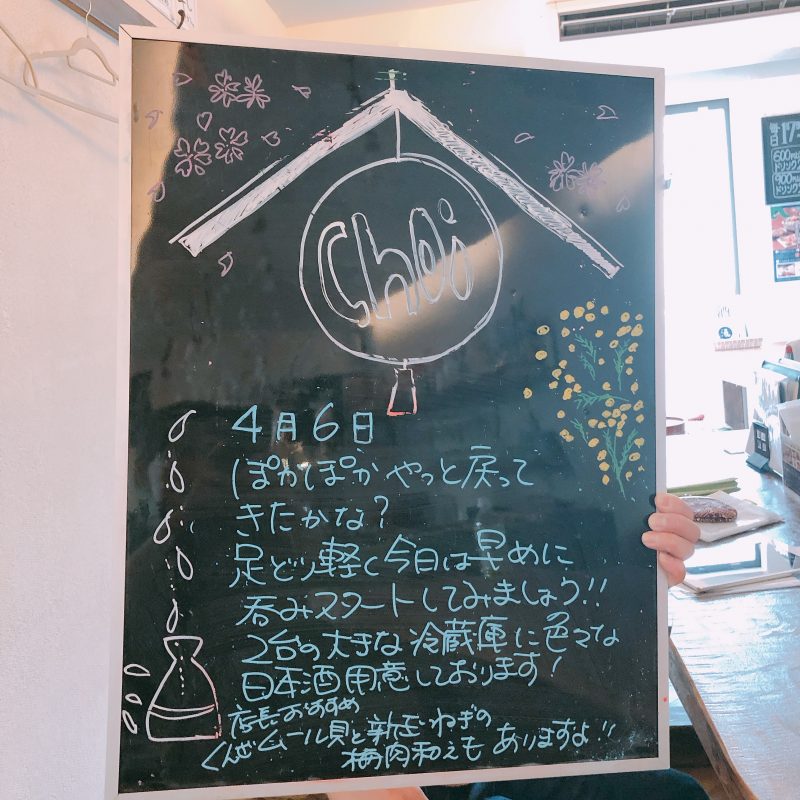 Choi
4月6日
ぽかぽかやっと戻って
きたかな?
足どり軽く今日は早めに
呑みスタートしてみましょう!!
2台の大きな冷蔵庫に色々な
日本酒用意しております!
店長おすすめ
くんせいムール貝と新玉ねぎの
梅肉和えもありますよ!!
毎日